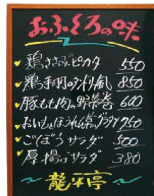 おふくろの味
鶏ささみピカタ 550
鶏手羽のソリ風 850
豚もも肉の野菜巻 600
おいもとほうれん草のグラタン 750
ごぼうサラダ 500
厚揚げサラダ 380
龍の亭